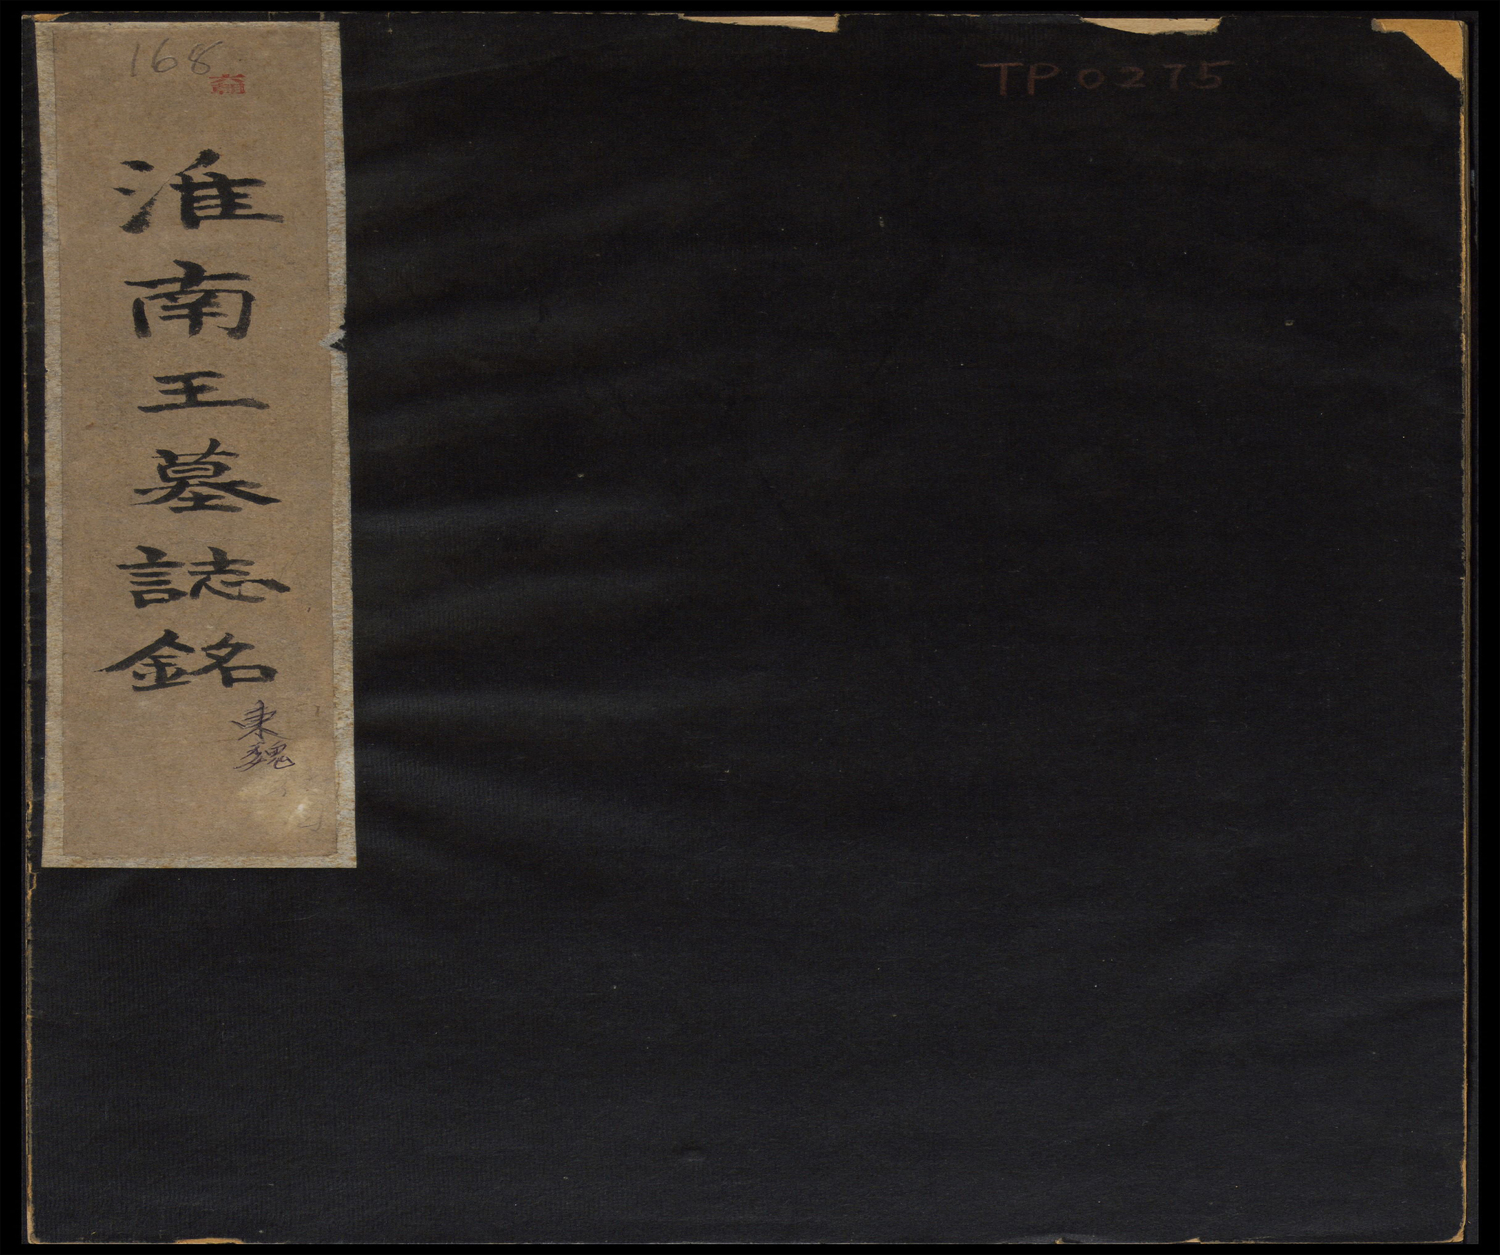 168
淮南王墓誌銘
東魏
TP0275